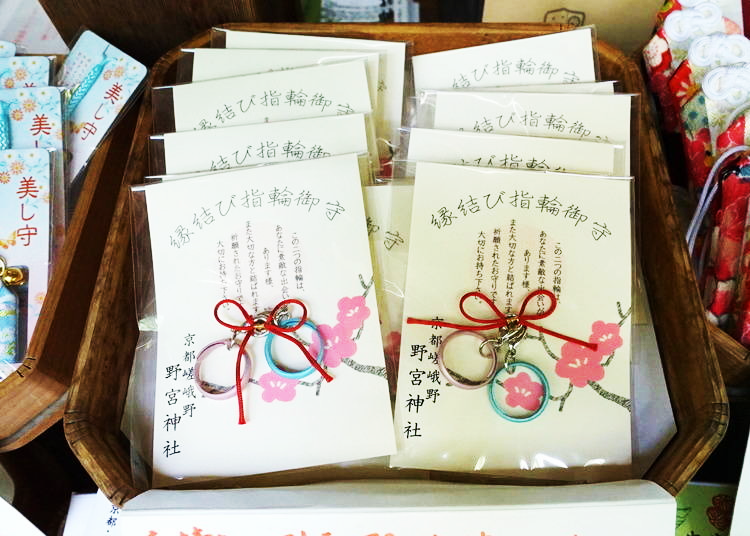 美し守
美し守
美し守
縁結び指輪御守
縁結び指輪御守
縁結び指輪御守
縁結び指輪御守
縁結び指輪御守
この二つの指輪は、
あなたに素敵な出会いが
あります様、
また大切な方と結ばれます
祈願されたお守りです
大切にお持ち下さい
京都嵯峨野
野宮神社
縁結び指輪御守
この二つの指輪は、
あなたに素敵な出会いが
あります様、
また大切な方と結ばれます
祈願されたお守りで
大切にお持ち下さい
京都嵯峨野
野宮神社